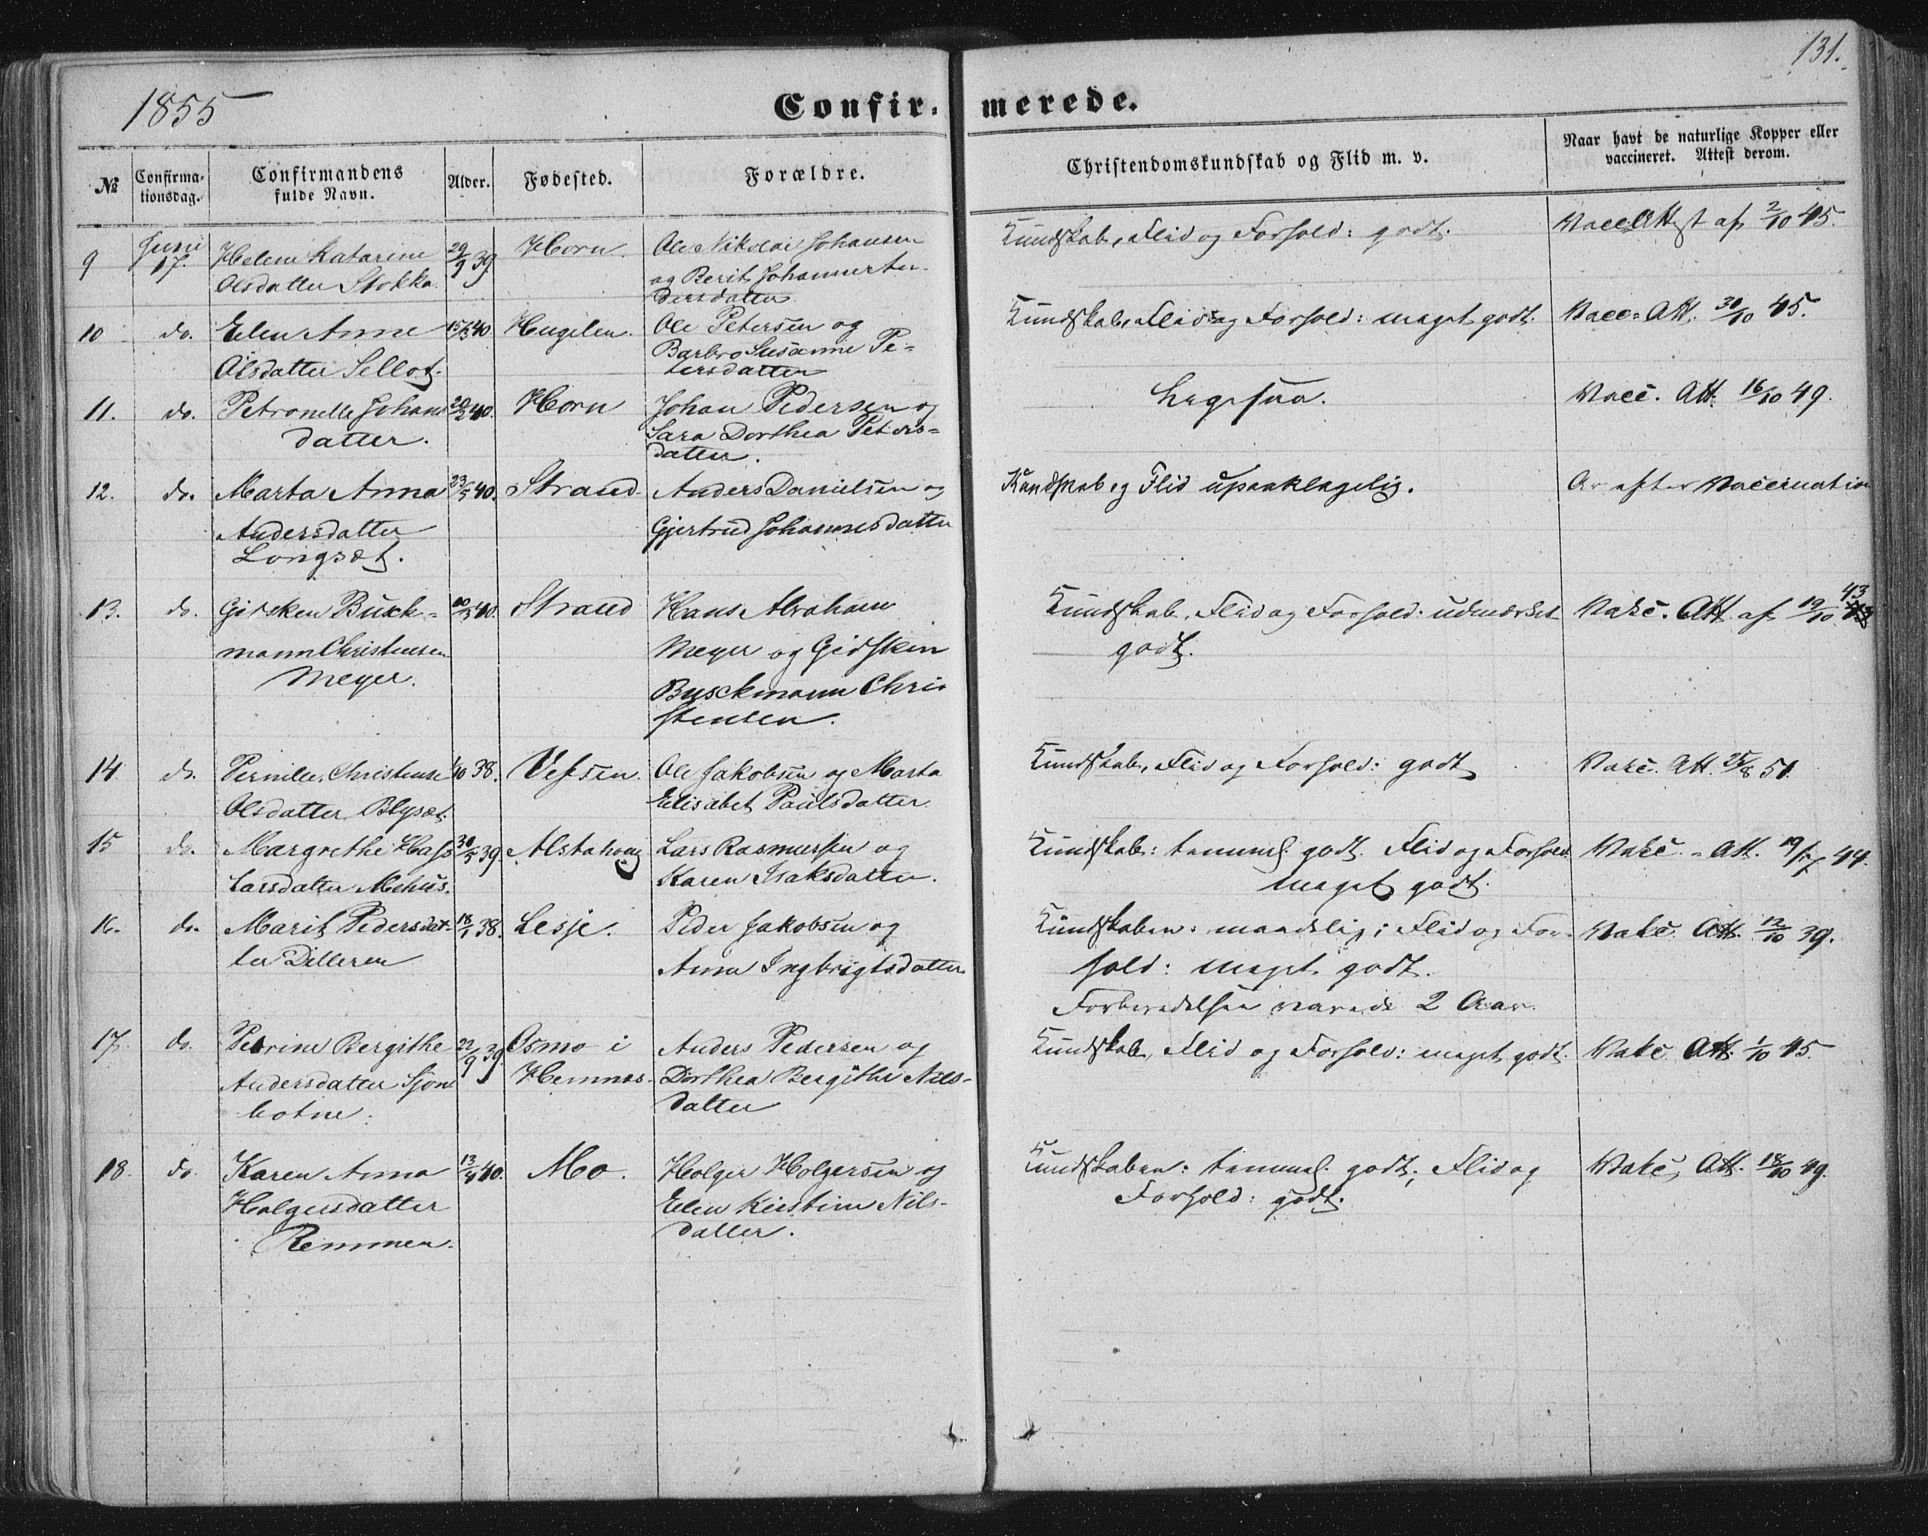 131.
1855
Confir- merede.
№
Confirma-
tionsdag.
Confirmandens
fulde Navn.
Alder.
Fødested.
Forældre.
Christendomskundskab og Flid m. v.
Naar havt de naturlige Kopper eller
vaccineret. Attest derom.
9 Juni 17. Helene Katarine 29/9 39 Horn. Ole Nikolai Johansen Kundskab, Flid og Forhold: godt. Vacc. Attst af 2/10 45.
Olsdatter Stokka og Berit Johanne An-
dersdatter
10 do. Elen Anne 15/3 40 Hugelen. Ole Petersen og Kundskab, Flid og Forhold: meget godt. Vacc. Att. 30/10 45.
Olsdatter Sellot. Barbro Susanne Pe-
tersdatter
11. do. Petronelle Johans 20/2 40. Horn Johan Pedersen og Ligesaa. Vacc. Att. 16/10 49.
datter. Sara Dorthea Peters-
datter.
12. do. Marta Anna 23/5 40. Strand Anders Danielsen og Kundskab og Flid upaaklagelig. Ar efter Vaccination
Andersdatter Gjertrud Johannesdatter
Longset.
13. do. Gidsken Buck- 10/3 40. Strand Hans Abraham Kundskab, Flid og Forhold: udmærket Vakc. Att. af 19/10 43
mann Christensen Meyer og Gidsken godt.
Meyer. Busckmann Chri
stensen.
14 do. Pernille Christense 1/10 38. Vefsen. Ole Jakobsen og Marta Kundskab, Flid og Forhold: godt Vakc. Att. 25/8 51.
Olsdatter Blyset. Elisabet Paulsdatter
15 do. Margrethe Hass 30/5 39. Alstahoug Lars Rasmussen og Kundskab: temmel. godt. Flid og Forhold Vakc. Att. 19/7 44.
Larsdatter Mehus. Karen Isaksdatter. meget godt.
16. do. Marit Pedersdat- 18/1 38. Lesje. Peder Jakobsen og Kundskaben: maadelig; Flid og For- Vakc. Att. 12/10 39.
ter Dilleren Anna Ingbrigtsdatter hold: meget godt.
Forberedelsen varede 2 Aar.
17. do. Petrine Bergithe 22/9 39. Osmo i Anders Pedersen og Kundskab, Flid og Forhold: meget godt. Vakc. Att. 1/10 45.
Andersdatter Sjon Hemnes. Dorthea Bergithe Nils-
botne. datter
18. do. Karen Anna 13/4 40. Mo. Holger Holgersen og Kundskaben: temmel. godt; Flid og Vakc. Att. 18/10 49.
Holgersdatter Elen Kirstine Nils- Forhold: godt.
Remmen. datter.